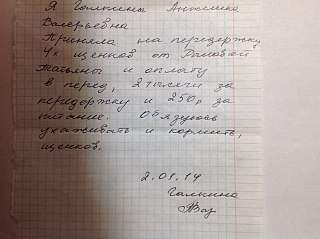 Я Галкина Анжелика
Валерьевна
Приняла на передержку
4х щенков от
Татьяны и оплату
в перед, 2 тысячи за
передержку и 250р за
питание. Обязуюсь
ухаживать и кормить,
щенков.
2.01.14
Галкина